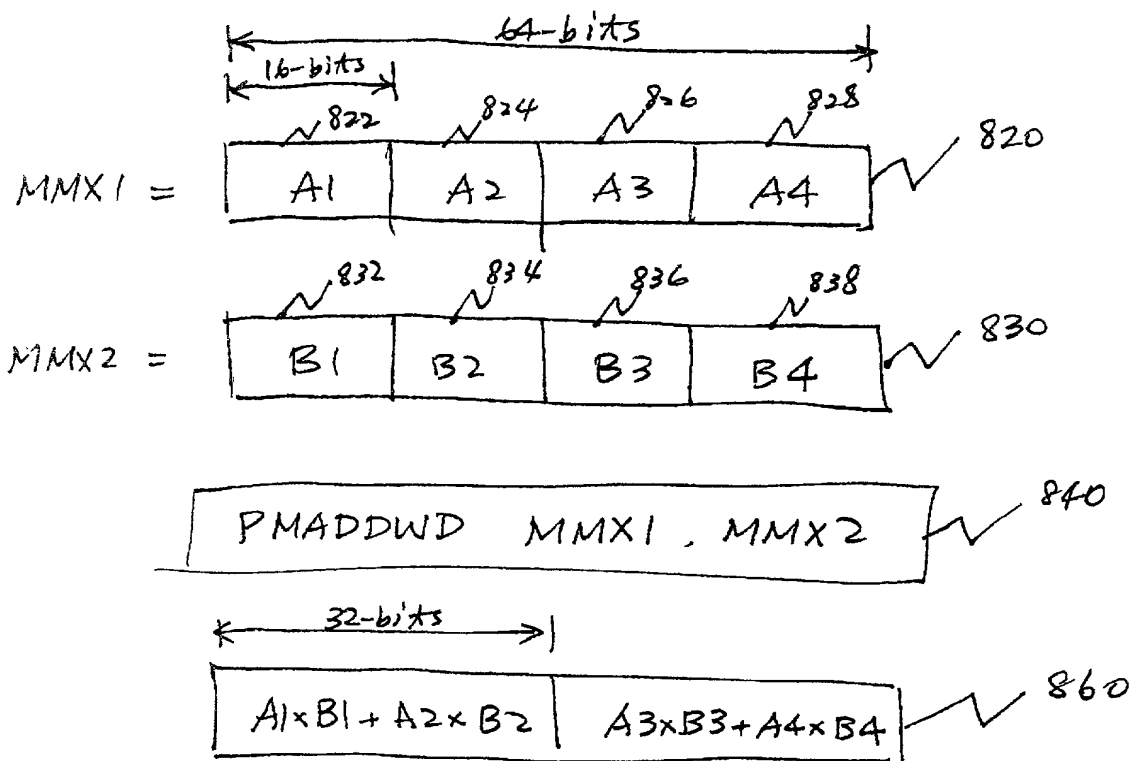 64-bits
16-bits
822 824 826 828
820
MMX1 = A1 A2 A3 A4
832 834 836 838
830
MMX2 = B1 B2 B3 B4
840
PMADDWD MMX1 , MMX2
32-bits
860
A1×B1+A2×B2 A3×B3+A4×B4